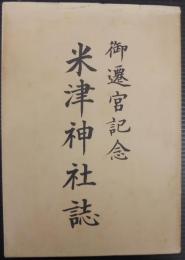 御遷宮記念
米津神社誌